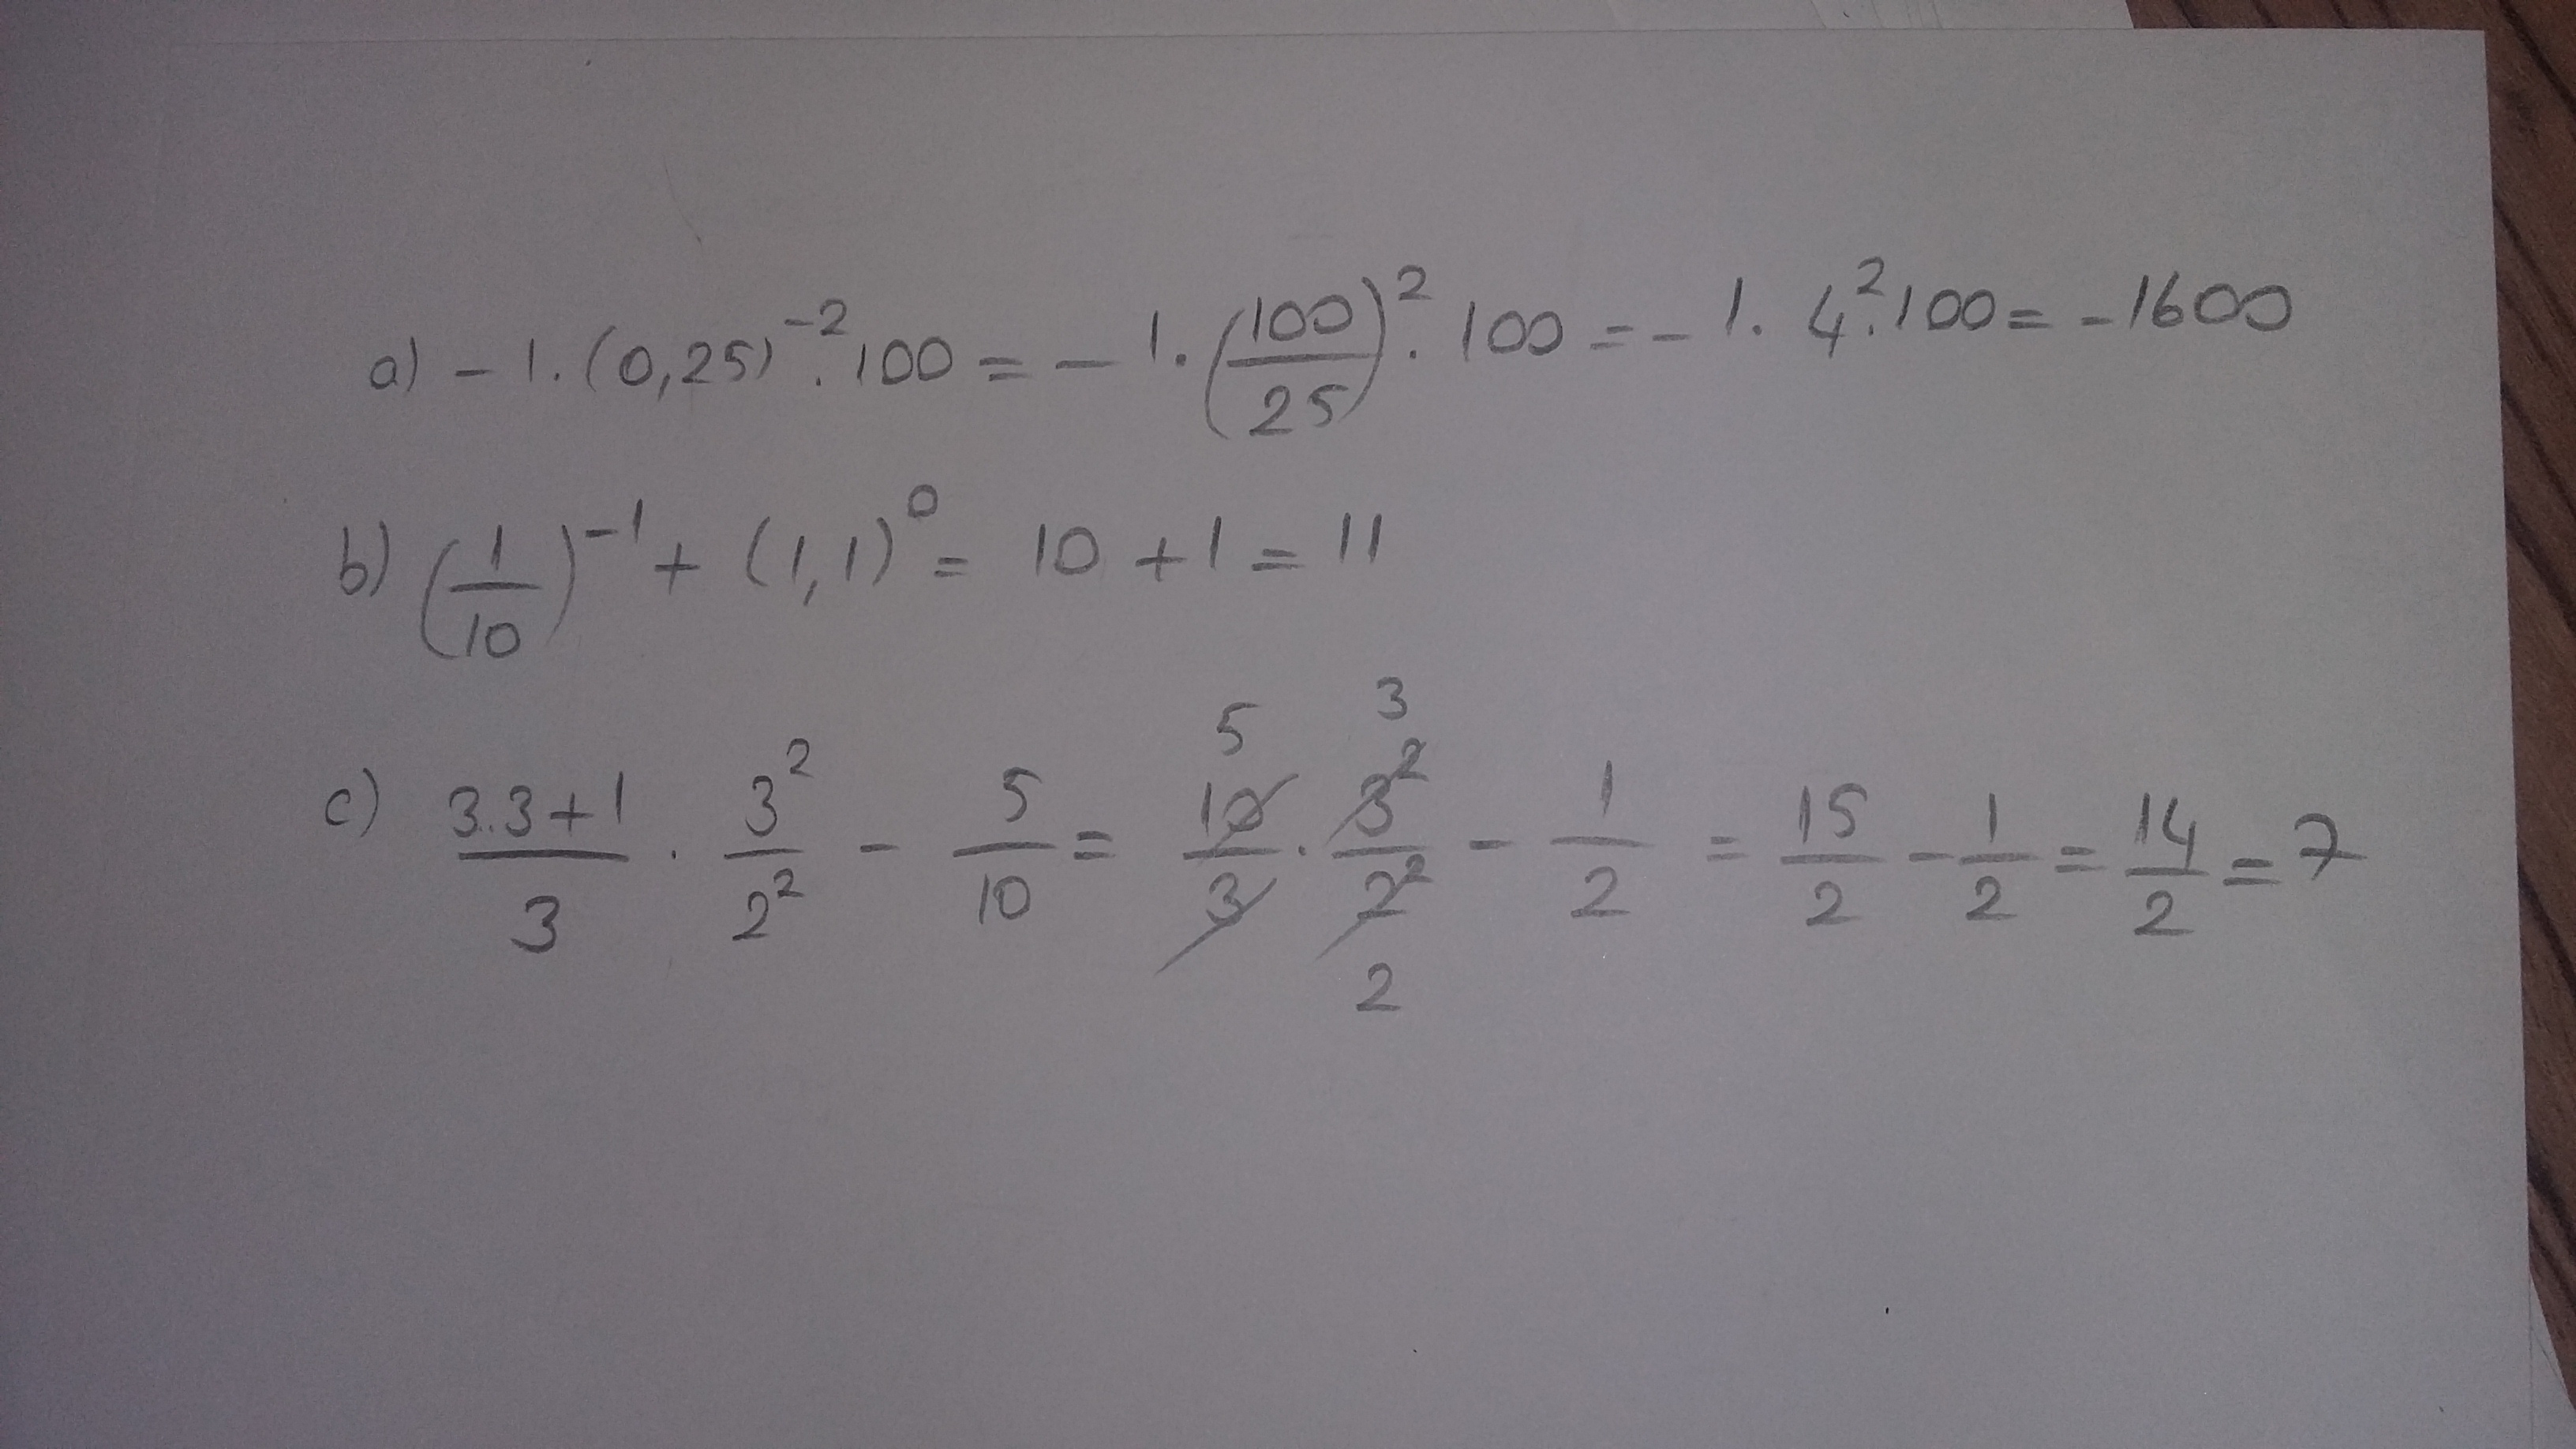 a) -1.(0,25)⁻².100 = -1.(100/25)².100 = -1. 4².100 = -1600
b) (1/10)⁻¹ + (1,1)⁰ = 10 + 1 = 11
c) (3.3+1)/3 . 3²/2² - 5/10 = 5 10/3 . 3 3²/2² 2 - 1/2 = 15/2 - 1/2 = 14/2 = 7